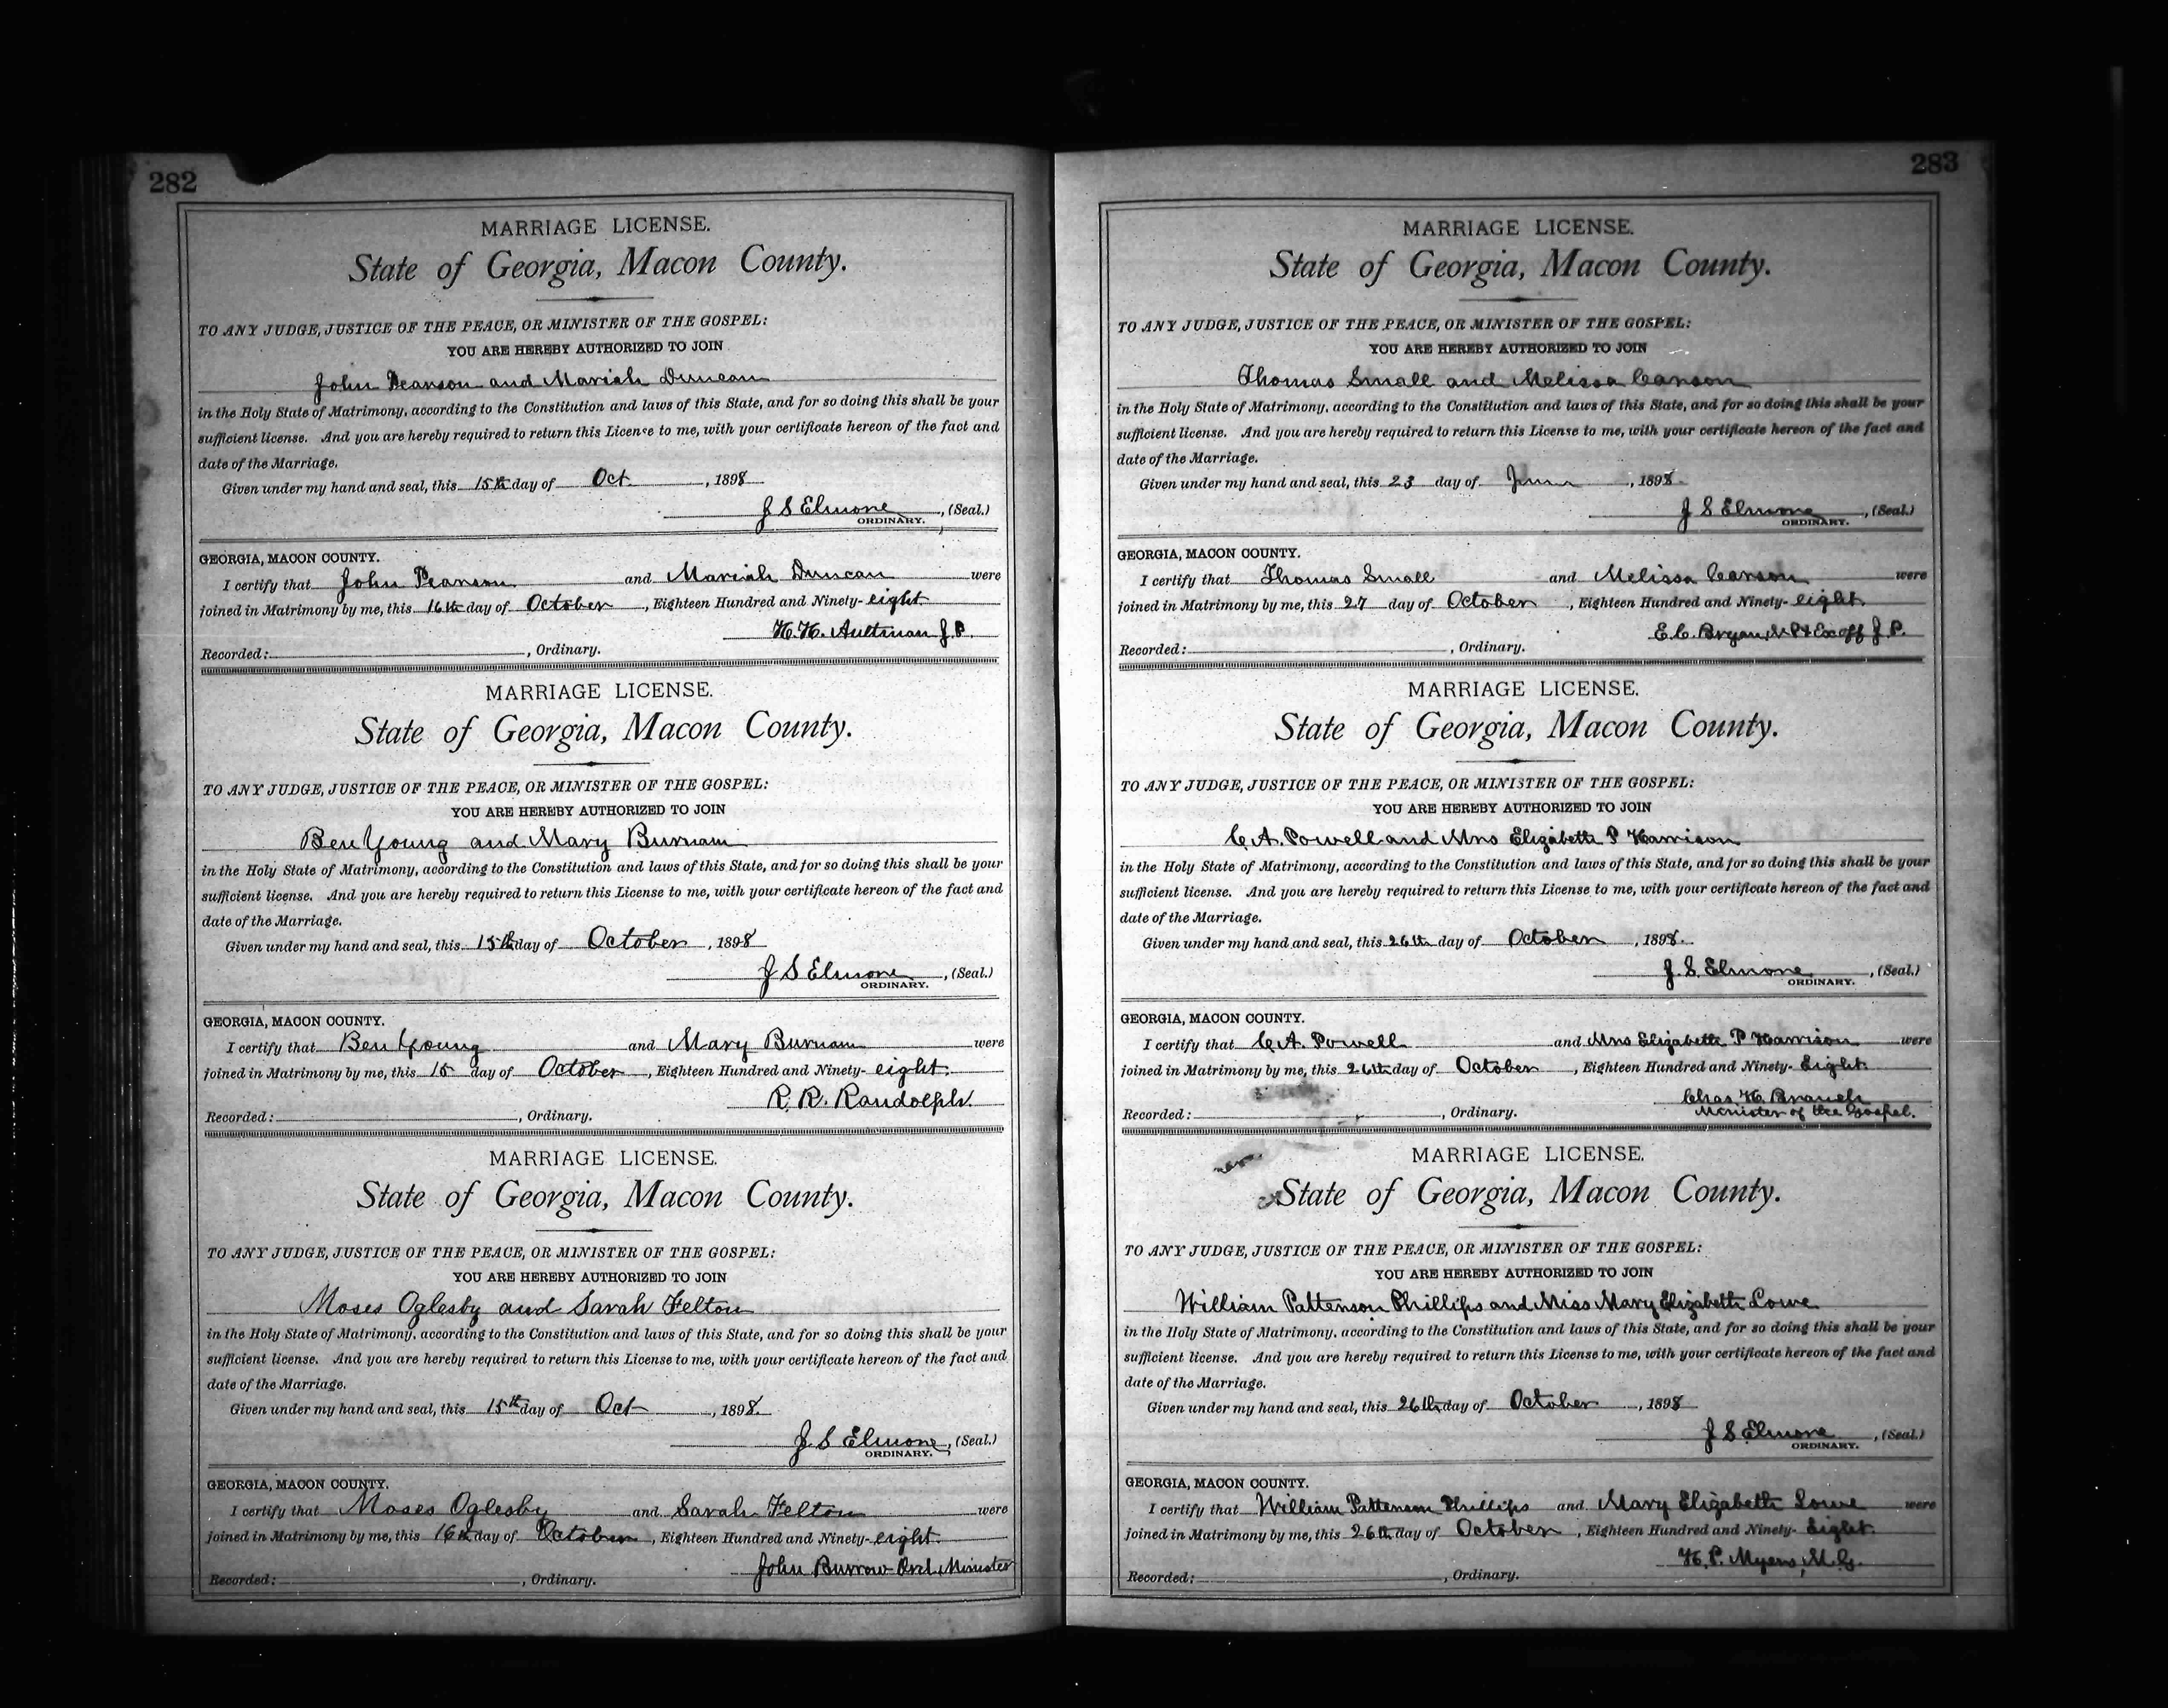 282
MARRIAGE LICENSE.
State of Georgia, Macon County.
TO ANY JUDGE, JUSTICE OF THE PEACE, OR MINISTER OF THE GOSPEL:
YOU ARE HEREBY AUTHORIZED TO JOIN
John Pearson and Mariah Duncan
in the Holy State of Matrimony, according to the Constitution and laws of this State, and for so doing this shall be your
sufficient license. And you are hereby required to return this License to me, with your certificate hereon of the fact and
date of the Marriage.
Given under my hand and seal, this 15th day of Oct , 1898
J S Elmore , (Seal.)
ORDINARY.
GEORGIA, MACON COUNTY.
I certify that John Pearson and Mariah Duncan were
joined in Matrimony by me, this 16th day of October , Eighteen Hundred and Ninety- eight.
H. H. Aultman J. P.
Recorded: , Ordinary.
MARRIAGE LICENSE.
State of Georgia, Macon County.
TO ANY JUDGE, JUSTICE OF THE PEACE, OR MINISTER OF THE GOSPEL:
YOU ARE HEREBY AUTHORIZED TO JOIN
Ben Young and Mary Burnam
in the Holy State of Matrimony, according to the Constitution and laws of this State, and for so doing this shall be your
sufficient license. And you are hereby required to return this License to me, with your certificate hereon of the fact and
date of the Marriage.
Given under my hand and seal, this 15th day of October , 1898
J S Elmore , (Seal.)
ORDINARY.
GEORGIA, MACON COUNTY.
I certify that Ben Young and Mary Burnam were
joined in Matrimony by me, this 15 day of October , Eighteen Hundred and Ninety- eight.
R. R. Randolph.
Recorded: , Ordinary.
MARRIAGE LICENSE.
State of Georgia, Macon County.
TO ANY JUDGE, JUSTICE OF THE PEACE, OR MINISTER OF THE GOSPEL:
YOU ARE HEREBY AUTHORIZED TO JOIN
Moses Oglesby and Sarah Felton
in the Holy State of Matrimony, according to the Constitution and laws of this State, and for so doing this shall be your
sufficient license. And you are hereby required to return this License to me, with your certificate hereon of the fact and
date of the Marriage.
Given under my hand and seal, this 15th day of Oct , 1898.
J S Elmore , (Seal.)
ORDINARY.
GEORGIA, MACON COUNTY.
I certify that Moses Oglesby and Sarah Felton were
joined in Matrimony by me, this 16th day of October , Eighteen Hundred and Ninety- eight.
John Burrow Ord. Minister
Recorded: , Ordinary.
283
MARRIAGE LICENSE.
State of Georgia, Macon County.
TO ANY JUDGE, JUSTICE OF THE PEACE, OR MINISTER OF THE GOSPEL:
YOU ARE HEREBY AUTHORIZED TO JOIN
Thomas Small and Melissa Carson
in the Holy State of Matrimony, according to the Constitution and laws of this State, and for so doing this shall be your
sufficient license. And you are hereby required to return this License to me, with your certificate hereon of the fact and
date of the Marriage.
Given under my hand and seal, this 23 day of June , 1898.
J S Elmore , (Seal.)
ORDINARY.
GEORGIA, MACON COUNTY.
I certify that Thomas Small and Melissa Carson were
joined in Matrimony by me, this 27 day of October , Eighteen Hundred and Ninety- eight.
E. C. Bryan, N P & Ex off J. P.
Recorded: , Ordinary.
MARRIAGE LICENSE.
State of Georgia, Macon County.
TO ANY JUDGE, JUSTICE OF THE PEACE, OR MINISTER OF THE GOSPEL:
YOU ARE HEREBY AUTHORIZED TO JOIN
C. A. Powell and Mrs Elizabeth P Harrison
in the Holy State of Matrimony, according to the Constitution and laws of this State, and for so doing this shall be your
sufficient license. And you are hereby required to return this License to me, with your certificate hereon of the fact and
date of the Marriage.
Given under my hand and seal, this 26th day of October , 1898.
J. S. Elmore , (Seal.)
ORDINARY.
GEORGIA, MACON COUNTY.
I certify that C. A. Powell and Mrs Elizabeth P Harrison were
joined in Matrimony by me, this 26th day of October , Eighteen Hundred and Ninety- Eight.
Chas H. Branch
Minister of the Gospel.
Recorded: , Ordinary.
MARRIAGE LICENSE.
State of Georgia, Macon County.
TO ANY JUDGE, JUSTICE OF THE PEACE, OR MINISTER OF THE GOSPEL:
YOU ARE HEREBY AUTHORIZED TO JOIN
William Pattenson Phillips and Miss Mary Elizabeth Lowe
in the Holy State of Matrimony, according to the Constitution and laws of this State, and for so doing this shall be your
sufficient license. And you are hereby required to return this License to me, with your certificate hereon of the fact and
date of the Marriage.
Given under my hand and seal, this 26th day of October , 1898
J S Elmore , (Seal.)
ORDINARY.
GEORGIA, MACON COUNTY.
I certify that William Pattenson Phillips and Mary Elizabeth Lowe were
joined in Matrimony by me, this 26th day of October , Eighteen Hundred and Ninety- Eight.
H. P. Myers, M. G.
Recorded: , Ordinary.